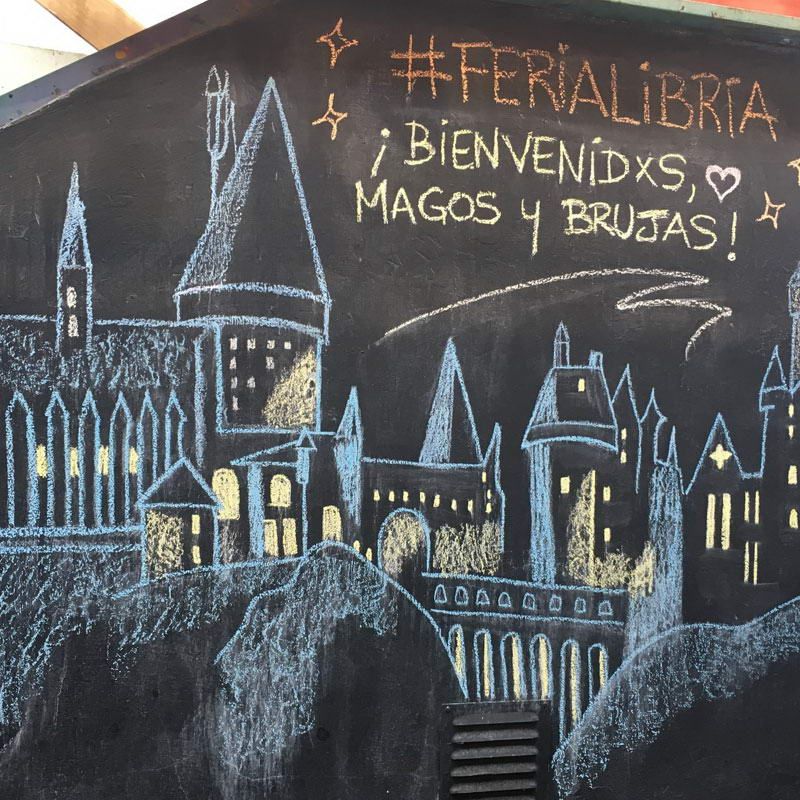 #FERIALIBRIA
¡BIENVENIDXS,
MAGOS Y BRUJAS!